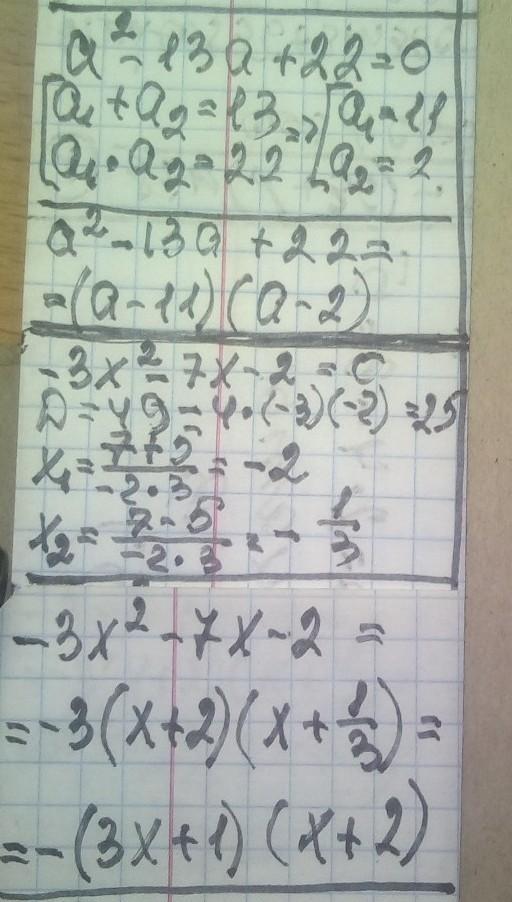 a² - 13a + 22 = 0
[a₁ + a₂ = 13 => [a₁ = 11
[a₁ · a₂ = 22 [a₂ = 2
a² - 13a + 22 =
= (a - 11)(a - 2)
-3x² - 7x - 2 = 0
D = 49 - 4 · (-3)(-2) = 25
x₁ = (7 + 5)/(-2 · 3) = -2
x₂ = (7 - 5)/(-2 · 3) = - 1/3
-3x² - 7x - 2 =
= -3(x + 2)(x + 1/3) =
= -(3x + 1)(x + 2)